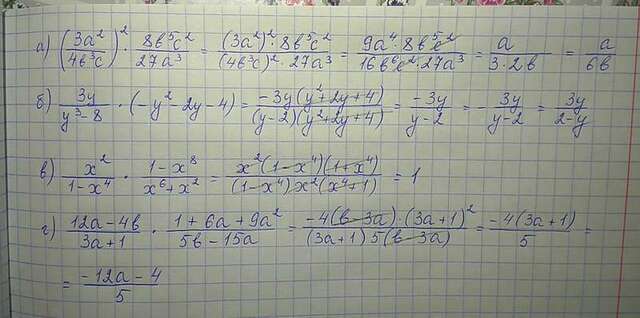 а) (3a²/4b³c)² · 8b⁵c²/27a³ = (3a²)² · 8b⁵c²/(4b³c)² · 27a³ = 9a⁴ · 8b⁵c²/16b⁶c² · 27a³ = a/3 · 2b = a/6b
б) 3y/y³-8 · (-y²-2y-4) = -3y(y²+2y+4)/(y-2)(y²+2y+4) = -3y/y-2 = -3y/y-2 = 3y/2-y
в) x²/1-x⁴ · 1-x⁸/x⁶+x² = x²(1-x⁴)(1+x⁴)/(1-x⁴)x²(x⁴+1) = 1
г) 12a-4b/3a+1 · 1+6a+9a²/5b-15a = -4(b-3a)·(3a+1)²/(3a+1)5(b-3a) = -4(3a+1)/5 =
= -12a-4/5